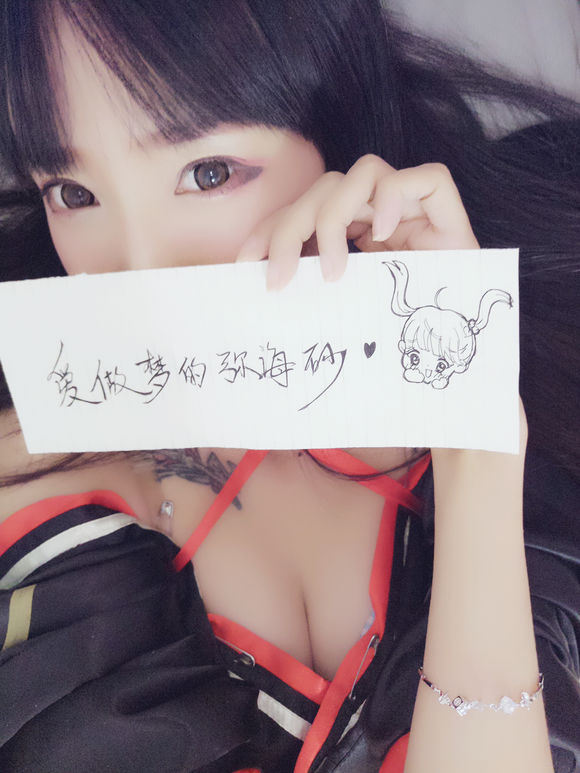 爱做梦的弥海砂